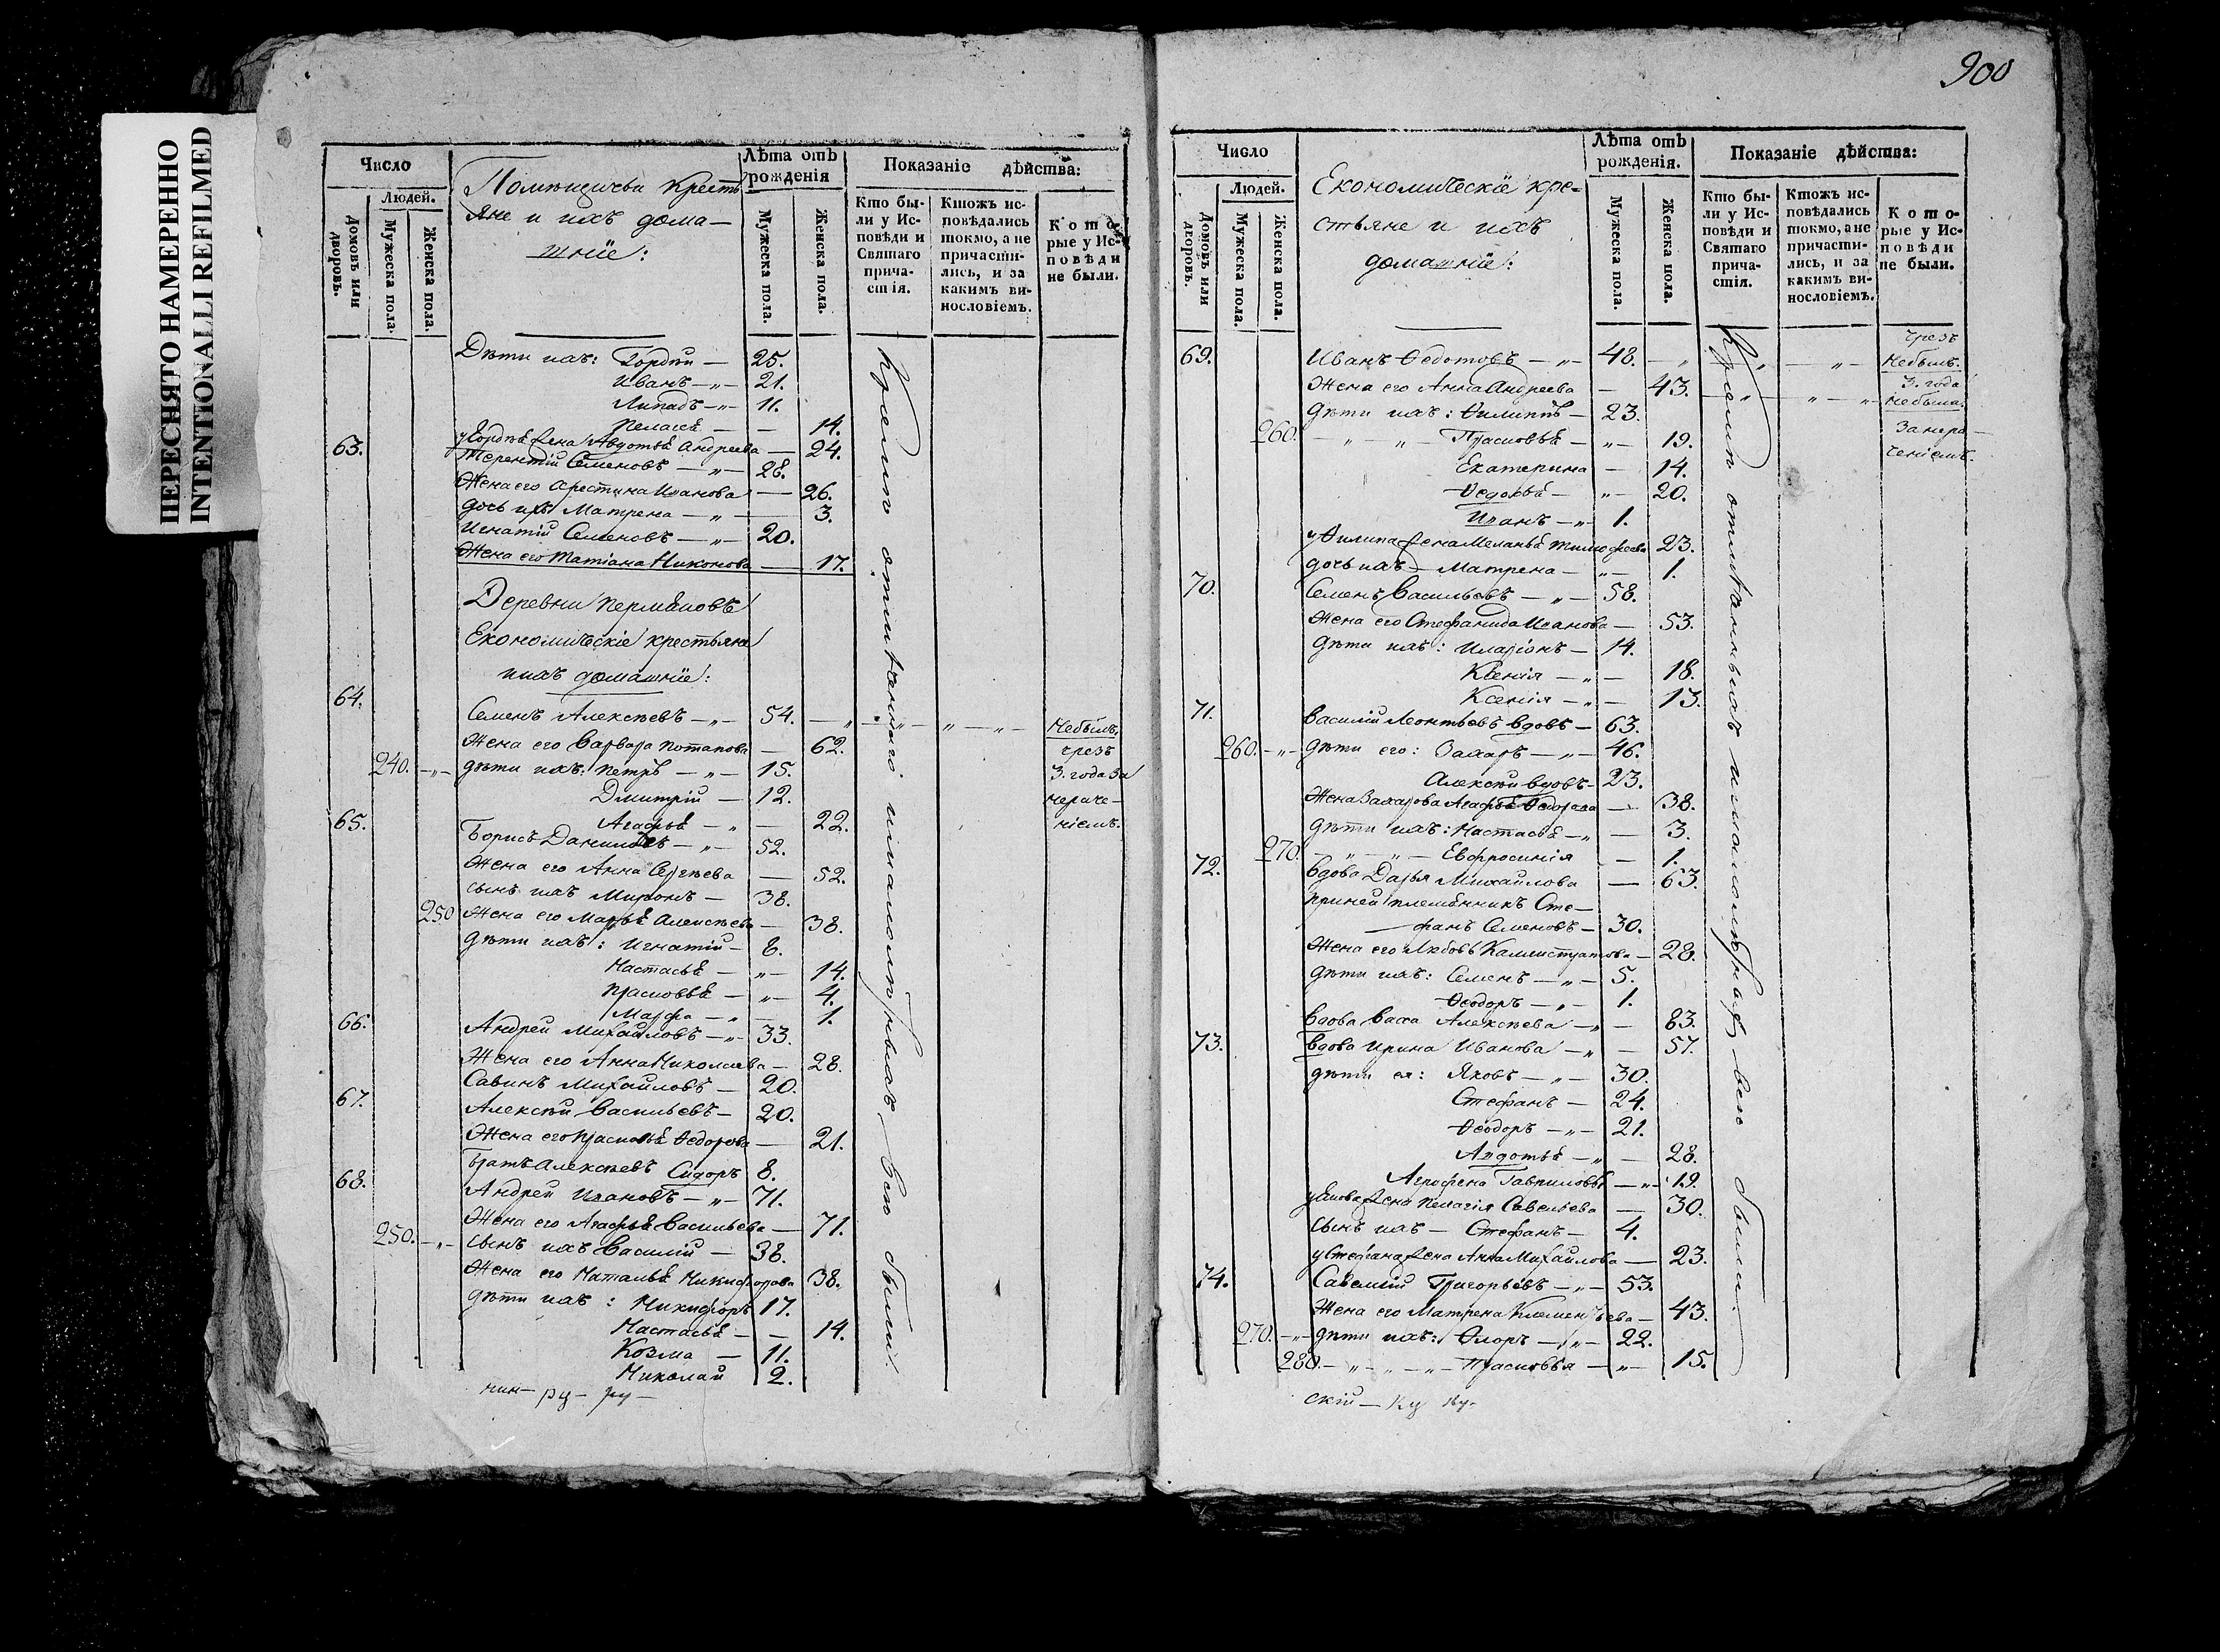 ПЕРЕСНЯТО НАМЕРЕННО
INTENTIONALLI REFILMED
Число
Людей.
Домовъ или дворовъ.
Мужеска пола.
Женска пола.
Помѣщичьи крестъ
яне и ихъ дома—
шнiе:
Лѣта отъ рожденiя
Мужеска пола.
Женска пола.
Показанiе дѣйства:
Кто бы-
ли у Ис-
повѣди и
Святаго
прича-
стiя.
Ктожъ ис-
повѣдались
токмо, а не
причасти-
лись, и за
какимъ ви-
нословiемъ.
Кото-
рые у Ис-
повѣди
не были.
Дѣти ихъ: Гордѣй — 25.
Иванъ — „ — 21.
— „ — 11.
Пелагѣя — — 14.
у Гордѣя жена Авдотья Андреева — 24.
63. Терентiй Семеновъ — „ — 28.
Жена его Иванова — 26.
дочь ихъ Матрена — „ — 3.
Игнатiй Семеновъ — „ — 20.
Жена его Татiана Никонова — 17.
Деревни
Економическiе крестьяне
и ихъ домашнiе:
64. Семенъ Алексѣевъ — „ — 54. — „ — „ — „ — „ — Небылъ,
Жена его Варвара Потапова — 62. чрезъ
240. — „ — дѣти ихъ: Петръ — „ — 15. 3. года за
Дмитрiй — 12. нераче—
Агафья — „ — 22. нiемъ.
65. Борисъ Даниловъ — „ — 52.
Жена его Анна Сергѣева — 52.
сынъ ихъ Миронъ — 38.
250 Жена его Марья Алексѣева — 38.
дѣти ихъ: Игнатiй — 8.
Настасья — „ — 14.
Прасковья — „ — 4.
Марфа — „ — 1.
66. Андрей Михайловъ — „ — 33.
Жена его Анна Николаева — 28.
Савинъ Михайловъ — 20.
67. Алексѣй Васильевъ — 20.
Жена его Прасковья Ѳедорова — 21.
Братъ Алексѣевъ Сидоръ 8.
68. Андрей Ивановъ — „ — 71.
Жена его Агафья Васильева — 71.
250. — „ — сынъ ихъ Василiй — 38.
Жена его Наталья Никифорова 38.
дѣти ихъ: Никифоръ 17.
Настасья — — 14.
Козма — 11.
Николай 2.
всѣ были
900
Число
Людей.
Домовъ или дворовъ.
Мужеска пола.
Женска пола.
Економическiе кре=
стьяне и ихъ
домашнiе:
Лѣта отъ рожденiя.
Мужеска пола.
Женска пола.
Показанiе дѣйства:
Кто бы-
ли у Ис-
повѣди и
Святаго
прича-
стiя.
Ктожъ ис-
повѣдались
токмо, а не
причасти-
лись, и за
какимъ ви-
нословiемъ.
Кото-
рые у Ис-
повѣди
не были.
чрезъ
69. Иванъ Ѳедотовъ — „ — 48. — „ „ — „ — Небылъ.
3. года
Жена его Анна Андреева — 43. — „ — „ — „ — небыла.
дѣти ихъ: Филиппъ — 23. За нера—
260. — „ — „ — Прасковья — „ — 19. ченiемъ.
Екатерина — 14.
Ѳедосья — „ — 20.
Иванъ — „ — 1.
у Филипа жена Меланья Тимофеева 23.
дочь ихъ Матрена — „ — 1.
70. Семенъ Васильевъ — „ — 58.
Жена его Стефанида Иванова — 53.
дѣти ихъ: Иларiонъ — 14.
Ксенiя — „ — 18.
Ксенiя — „ — 13.
71. Василiй Леонтьевъ вдовъ — 63.
260. — „ — дѣти его: Захаръ — „ — 46.
Алексѣй вдовъ — 23.
Жена Захарова Агафья Ѳедорова — 38.
дѣти ихъ: Настасья — „ — 3.
270. — „ — „ — Евфросинiя — 1.
72. Вдова Дарья Михайлова — 63.
При ней племянникъ Сте—
фанъ Семеновъ — 30.
Жена его Любовь Калистратова — 28.
дѣти ихъ: Семенъ — „ — 5.
Ѳеодоръ — „ — 1.
Вдова Васа Алексѣева — „ — 83.
73. Вдова Ирина Иванова — „ — 57.
дѣти ея: Яковъ — „ — 30.
Стефанъ — 24.
Ѳеодоръ — „ — 21.
Авдотья — „ — 28.
Агрофена Гавриловa — „ — 19.
у Якова жена Пелагiя Савельева — 30.
сынъ ихъ — Стефанъ — 4.
у Стефана жена Анна Михайлова — 23.
74. Савелiй Григорьевъ — „ — 53.
Жена его Матрена Климентьева — 43.
270. — „ — дѣти ихъ: Флоръ — „ — 22.
280. — „ — „ — „ — Прасковья — „ — 15.
всѣ были
скiй —